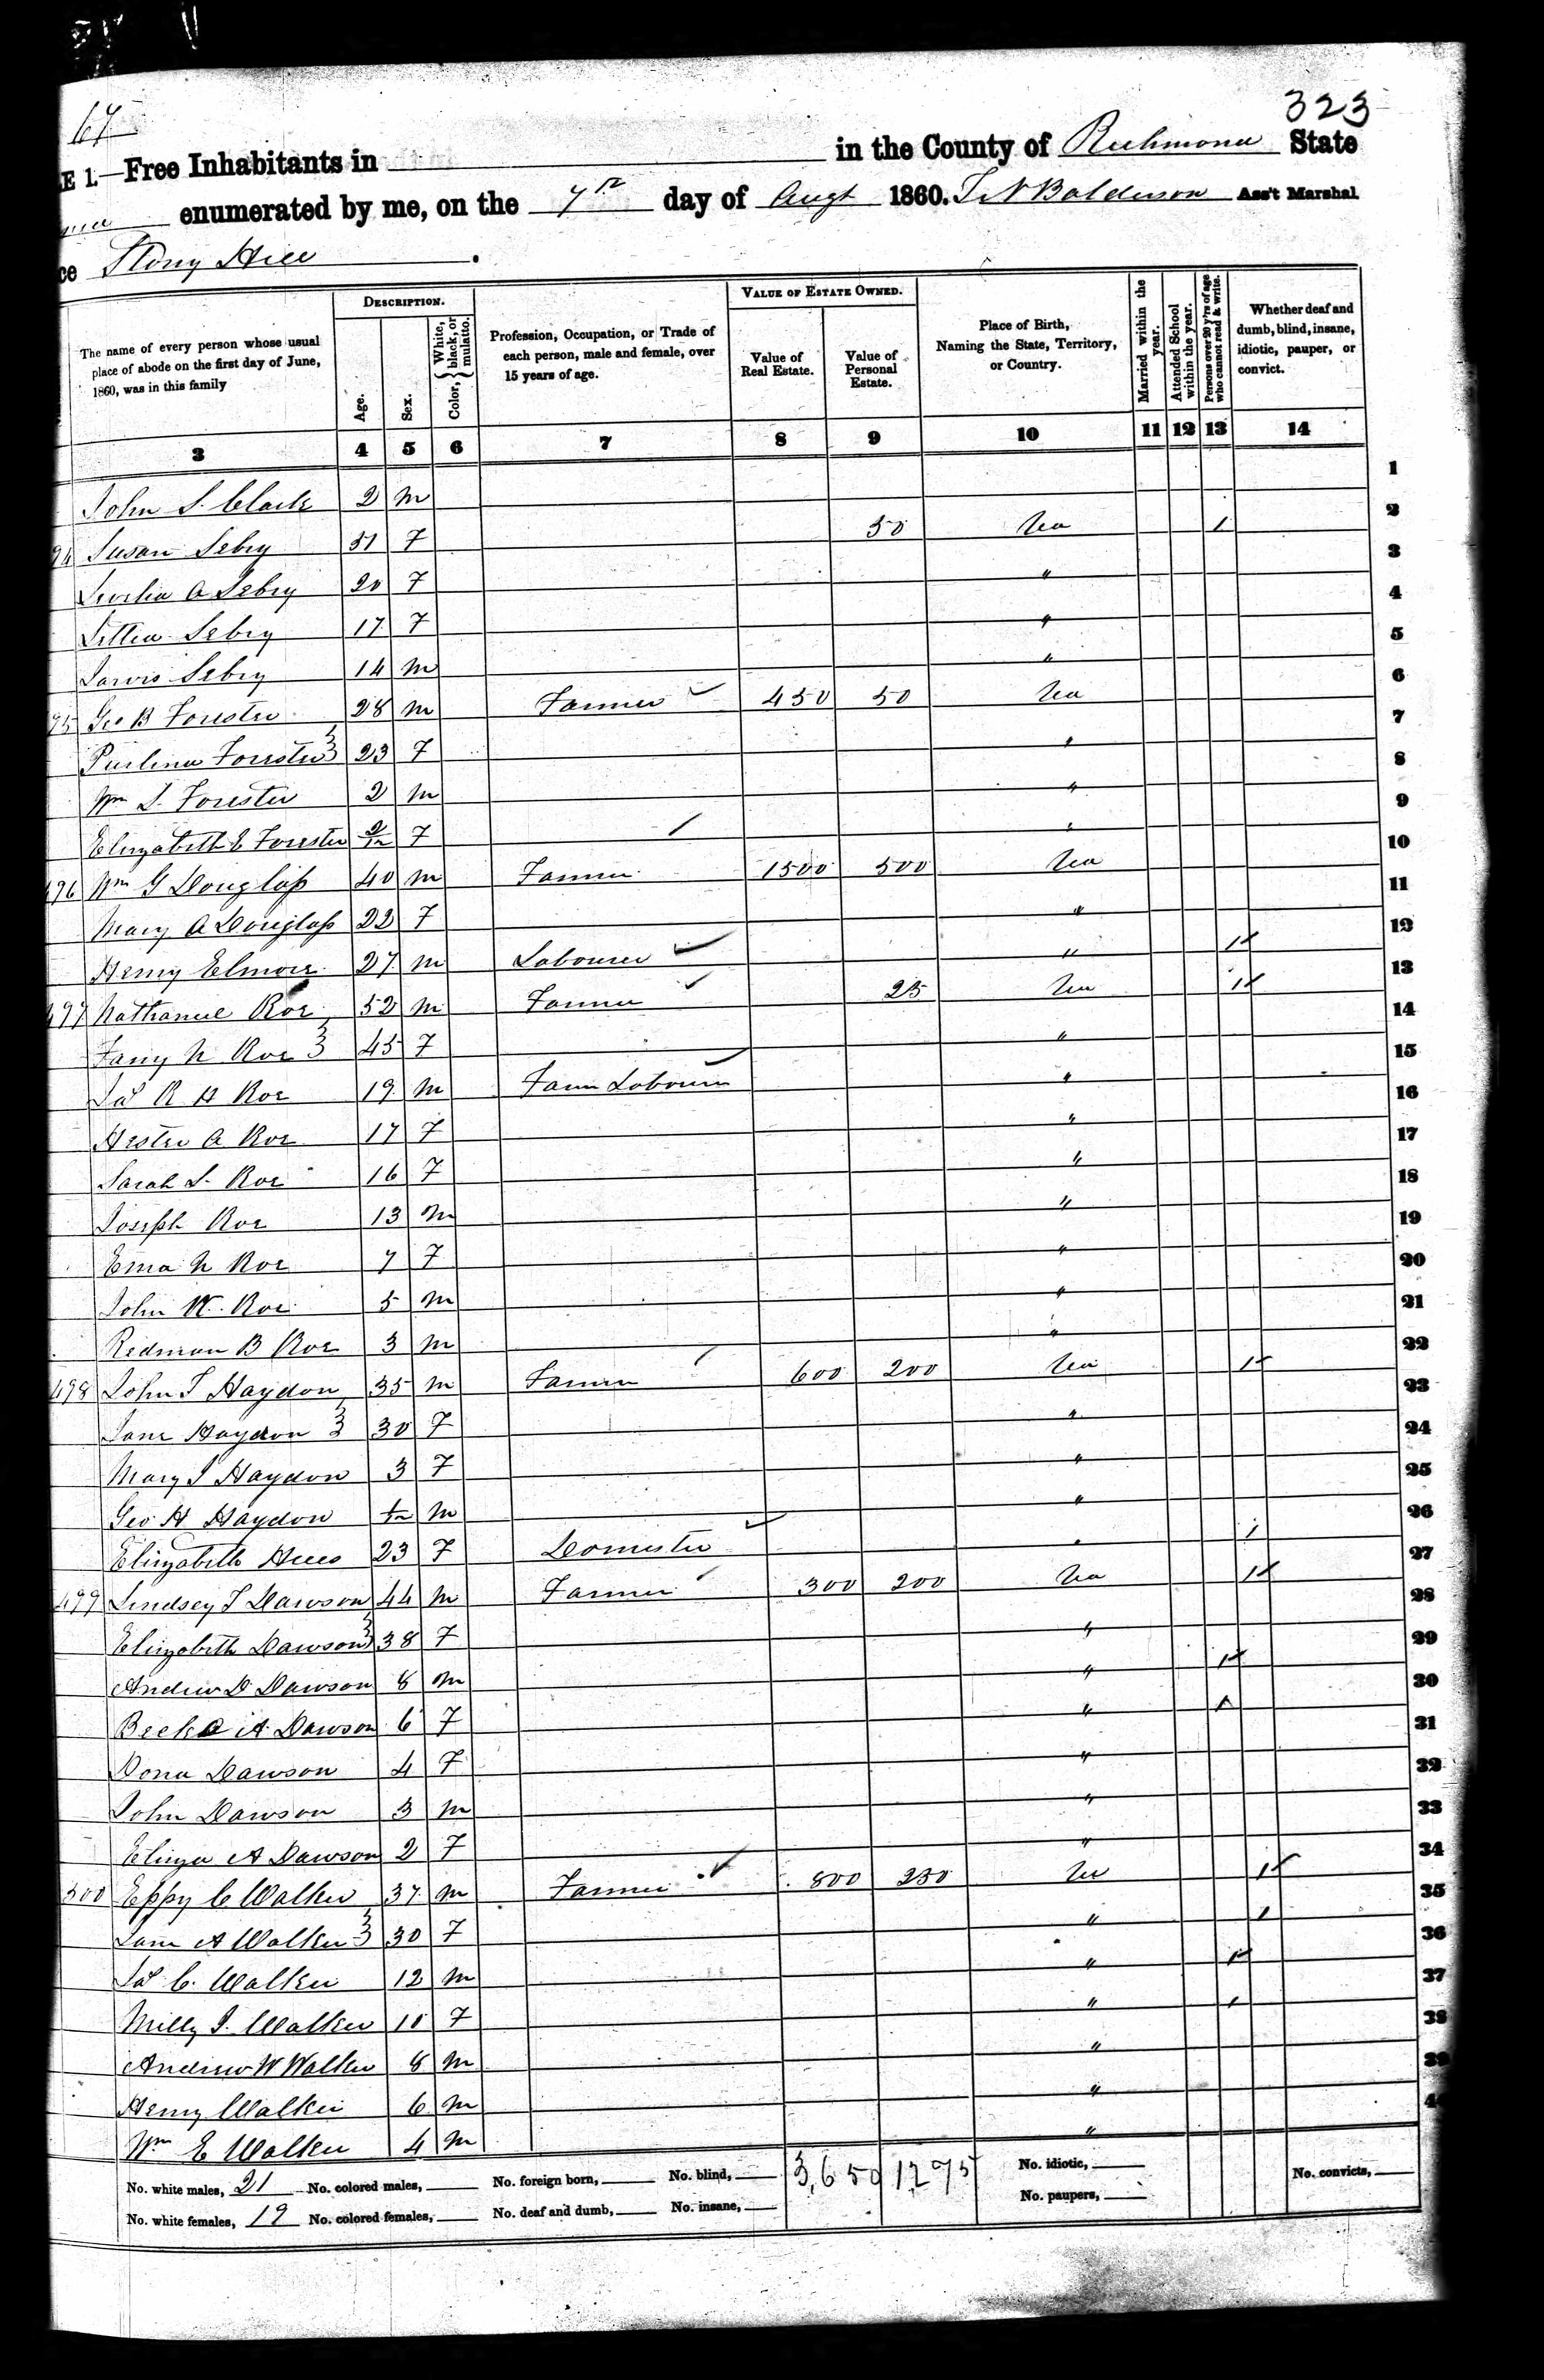 67
323
E 1.—Free Inhabitants in in the County of Richmond State
enumerated by me, on the 7th day of Augt 1860. T N Balderson Ass't Marshal
ce Stony Hill
The name of every person whose usual place of abode on the first day of June, 1860, was in this family
Description.
Age.
Sex.
Color, { White, black, or mulatto.
Profession, Occupation, or Trade of each person, male and female, over 15 years of age.
Value of Estate Owned.
Value of Real Estate.
Value of Personal Estate.
Place of Birth, Naming the State, Territory, or Country.
Married within the year.
Attended School within the year.
Persons over 20 y'rs of age who cannot read & write.
Whether deaf and dumb, blind, insane, idiotic, pauper, or convict.
3 4 5 6 7 8 9 10 11 12 13 14
John S. Clark 2 m 1
94 Susan Sebry 51 F 50 Va 1 2
A Sebry 20 F " 3
Sebry 17 F " 4
Jarvis Sebry 14 m " 5
95 Geo B Forester 28 m Farmer 450 50 Va 6
Paulina Forester 23 F " 7
Wm S. Forester 2 m " 8
Elizabeth E Forester 2/12 F " 9
496 Wm G Douglass 40 m Farmer 1500 500 Va 10
Mary A Douglass 22 F " 11
Henry Elmore 27 m Labourer " 1 12
497 Nathaniel Roe 52 m Farmer 25 Va 1 13
Fany N Roe 45 F " 14
Jas R H Roe 19 m Farm Labourer " 15
Hester A Roe 17 F " 16
Sarah S. Roe 16 F " 17
Joseph Roe 13 m " 18
Ema N Roe 7 F " 19
John W. Roe 5 m " 20
Redman B Roe 3 m " 21
498 John T Haydon 35 m Farmer 600 200 Va 1 22
Jane Haydon 30 F " 23
Mary J Haydon 3 F " 24
Geo H Haydon 1/12 m " 25
Elizabeth 23 F Domestic " 1 26
499 Lindsey T Dawson 44 m Farmer 300 200 Va 1 27
Elizabeth Dawson 38 F " 28
Andrew D Dawson 8 m " 1 29
A. Dawson 6 F " 1 30
Dona Dawson 4 F " 31
John Dawson 3 m " 32
Eliza A Dawson 2 F " 33
500 Eppy C Walker 37 m Farmer 800 250 Va 1 34
Jane A Walker 30 F " 1 35
Jas C. Walker 12 m " 1 36
Milly J. Walker 10 F " 1 37
Andrew W Walker 8 m " 38
Henry Walker 6 m " 39
Wm E Walker 4 m " 4
No. white males, 21 No. colored males, No. foreign born, No. blind, 3,650 1275 No. idiotic, No. convicts,
No. white females, 19 No. colored females, No. deaf and dumb, No. insane, No. paupers,